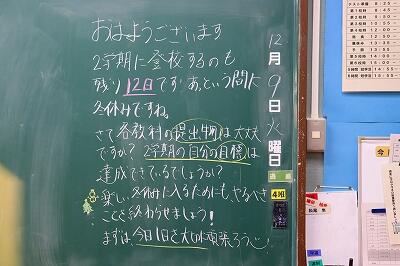 おはようございます
2学期に登校するのも
残り12日です。あという間に
冬休みですね。
さて各教科の提出物は大丈夫
ですか？2学期の自分の目標は
達成できているでしょうか？
楽しい冬休みに入るためにも、やるべき
ことを終わらせましょう！
まずは、今日1日を大切に頑張ろう
12
月
9
日
火
曜
日
週番
4班